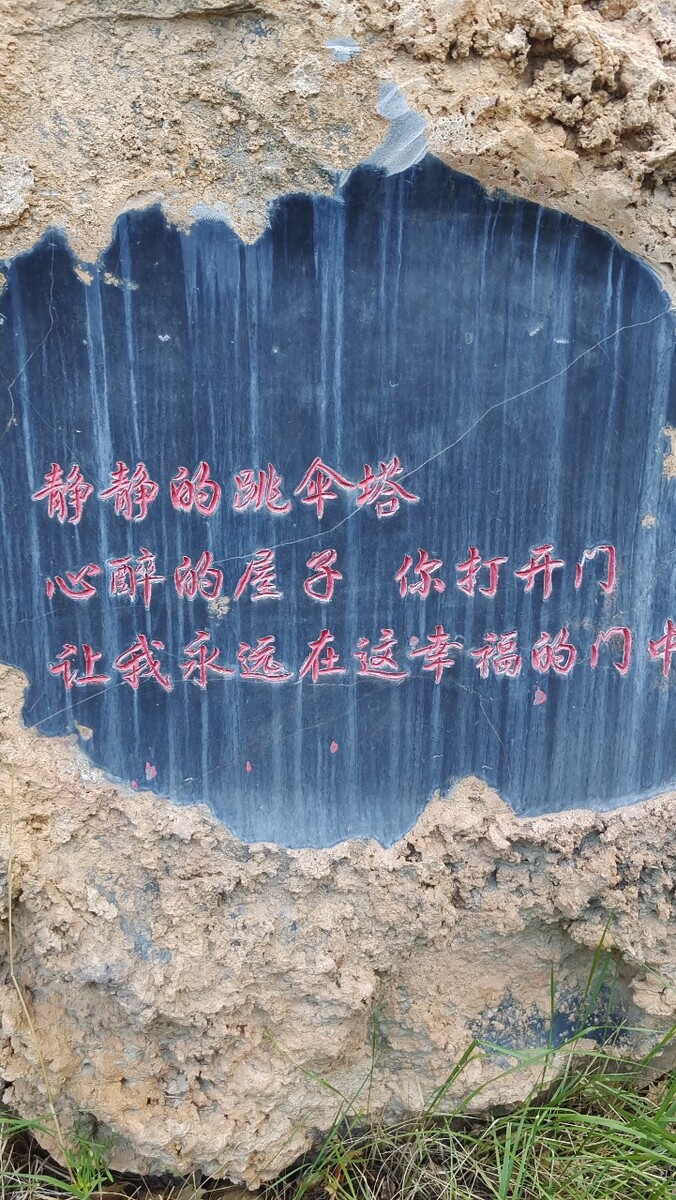 静静的跳伞塔
心醉的屋子 你打开门
让我永远在这幸福的门中